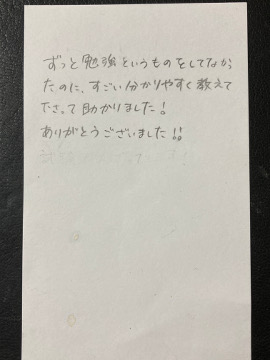 ずっと勉強というものをしてなかっ
たのに、すごい分かりやすく教えて
下さって助かりました！
ありがとうございました!!